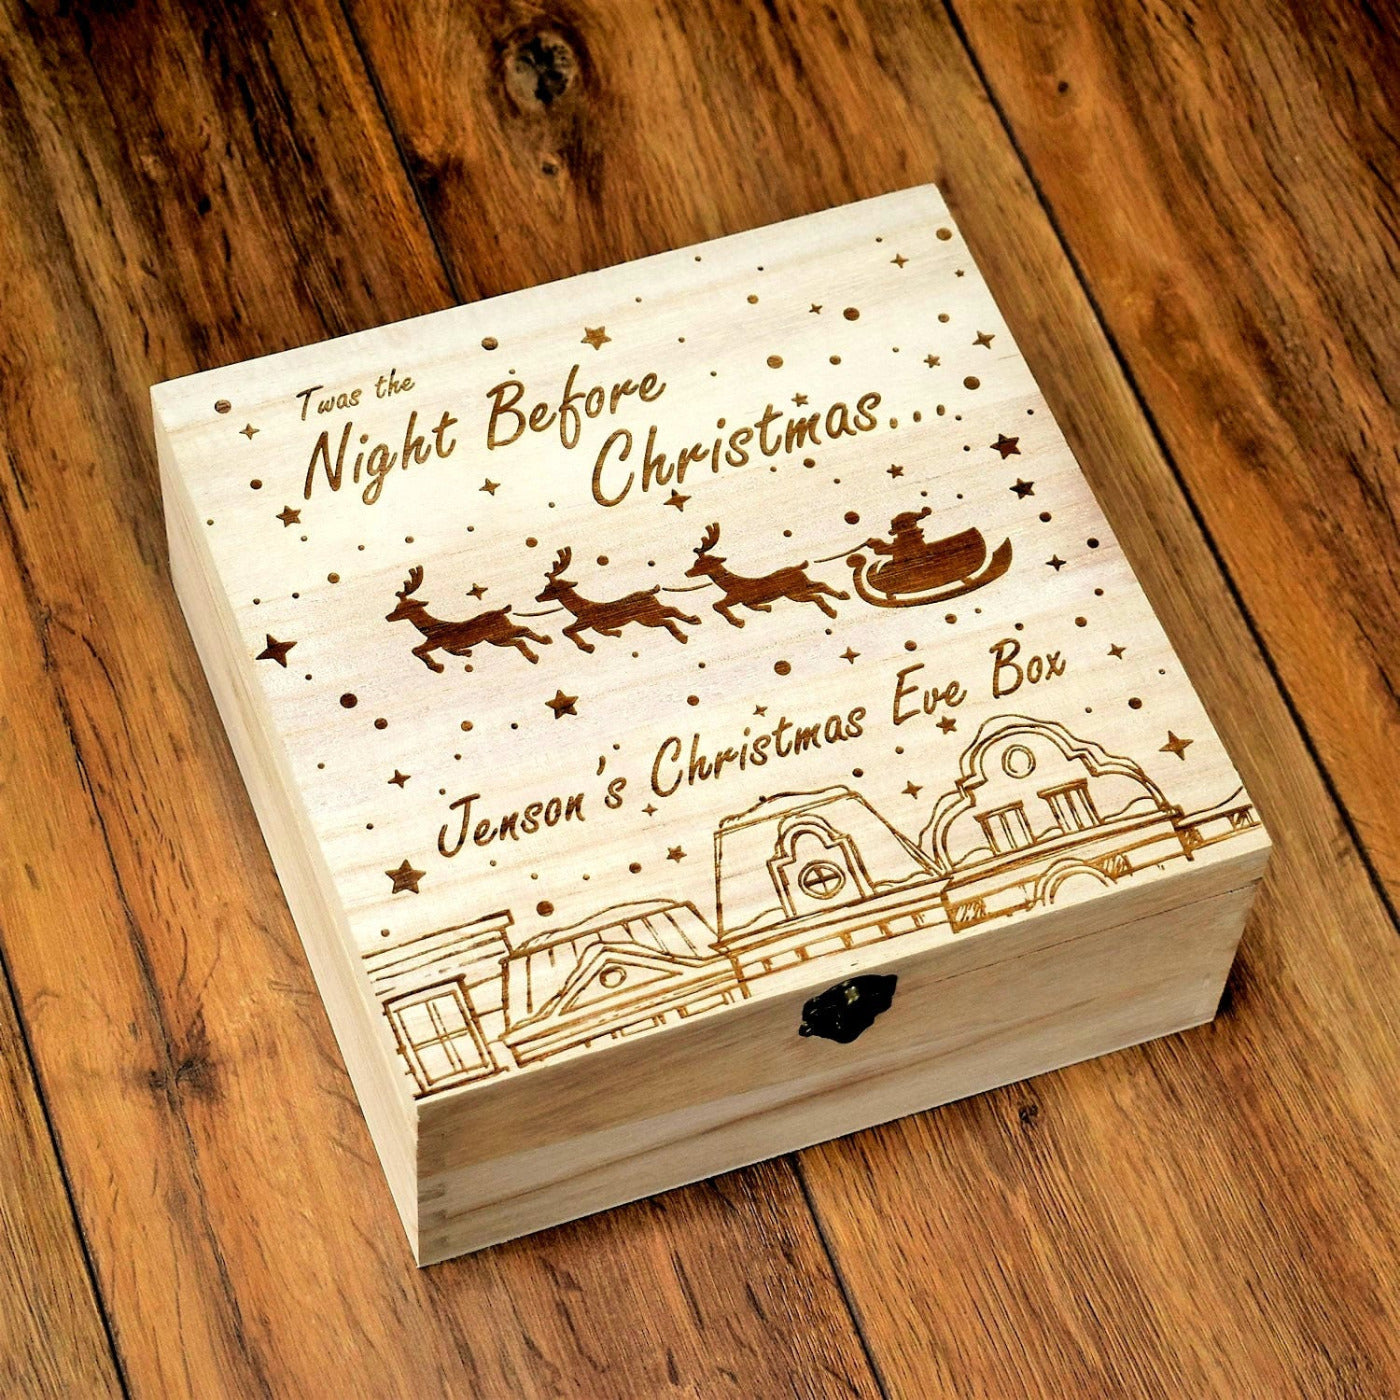 Twas the
Night Before
Christmas...
Jenson's Christmas Eve Box